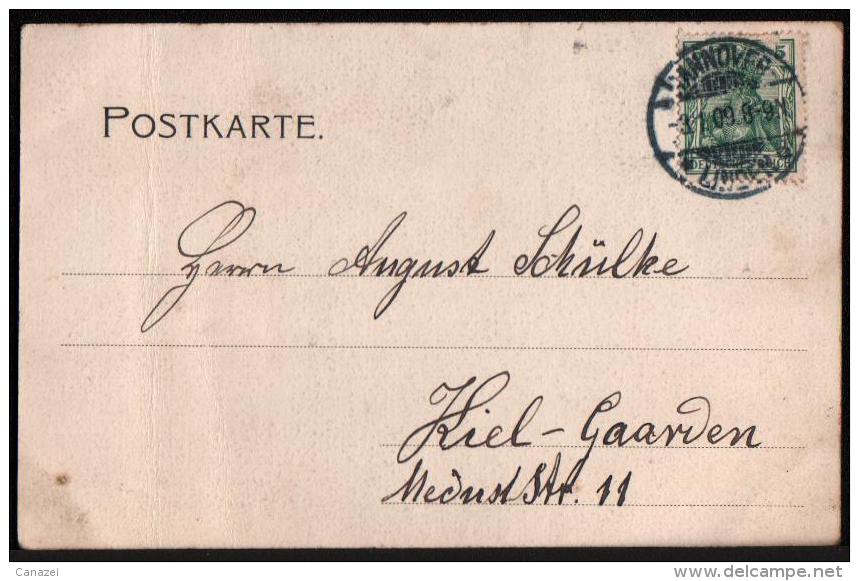 POSTKARTE.
5
HANNOVER
1.1.09.8-9V
DEUTSCHES REICH
LINDEN
Herrn August Schülke
Kiel-Gaarden
MedusaStr. 11
Canazei
delcampe.net